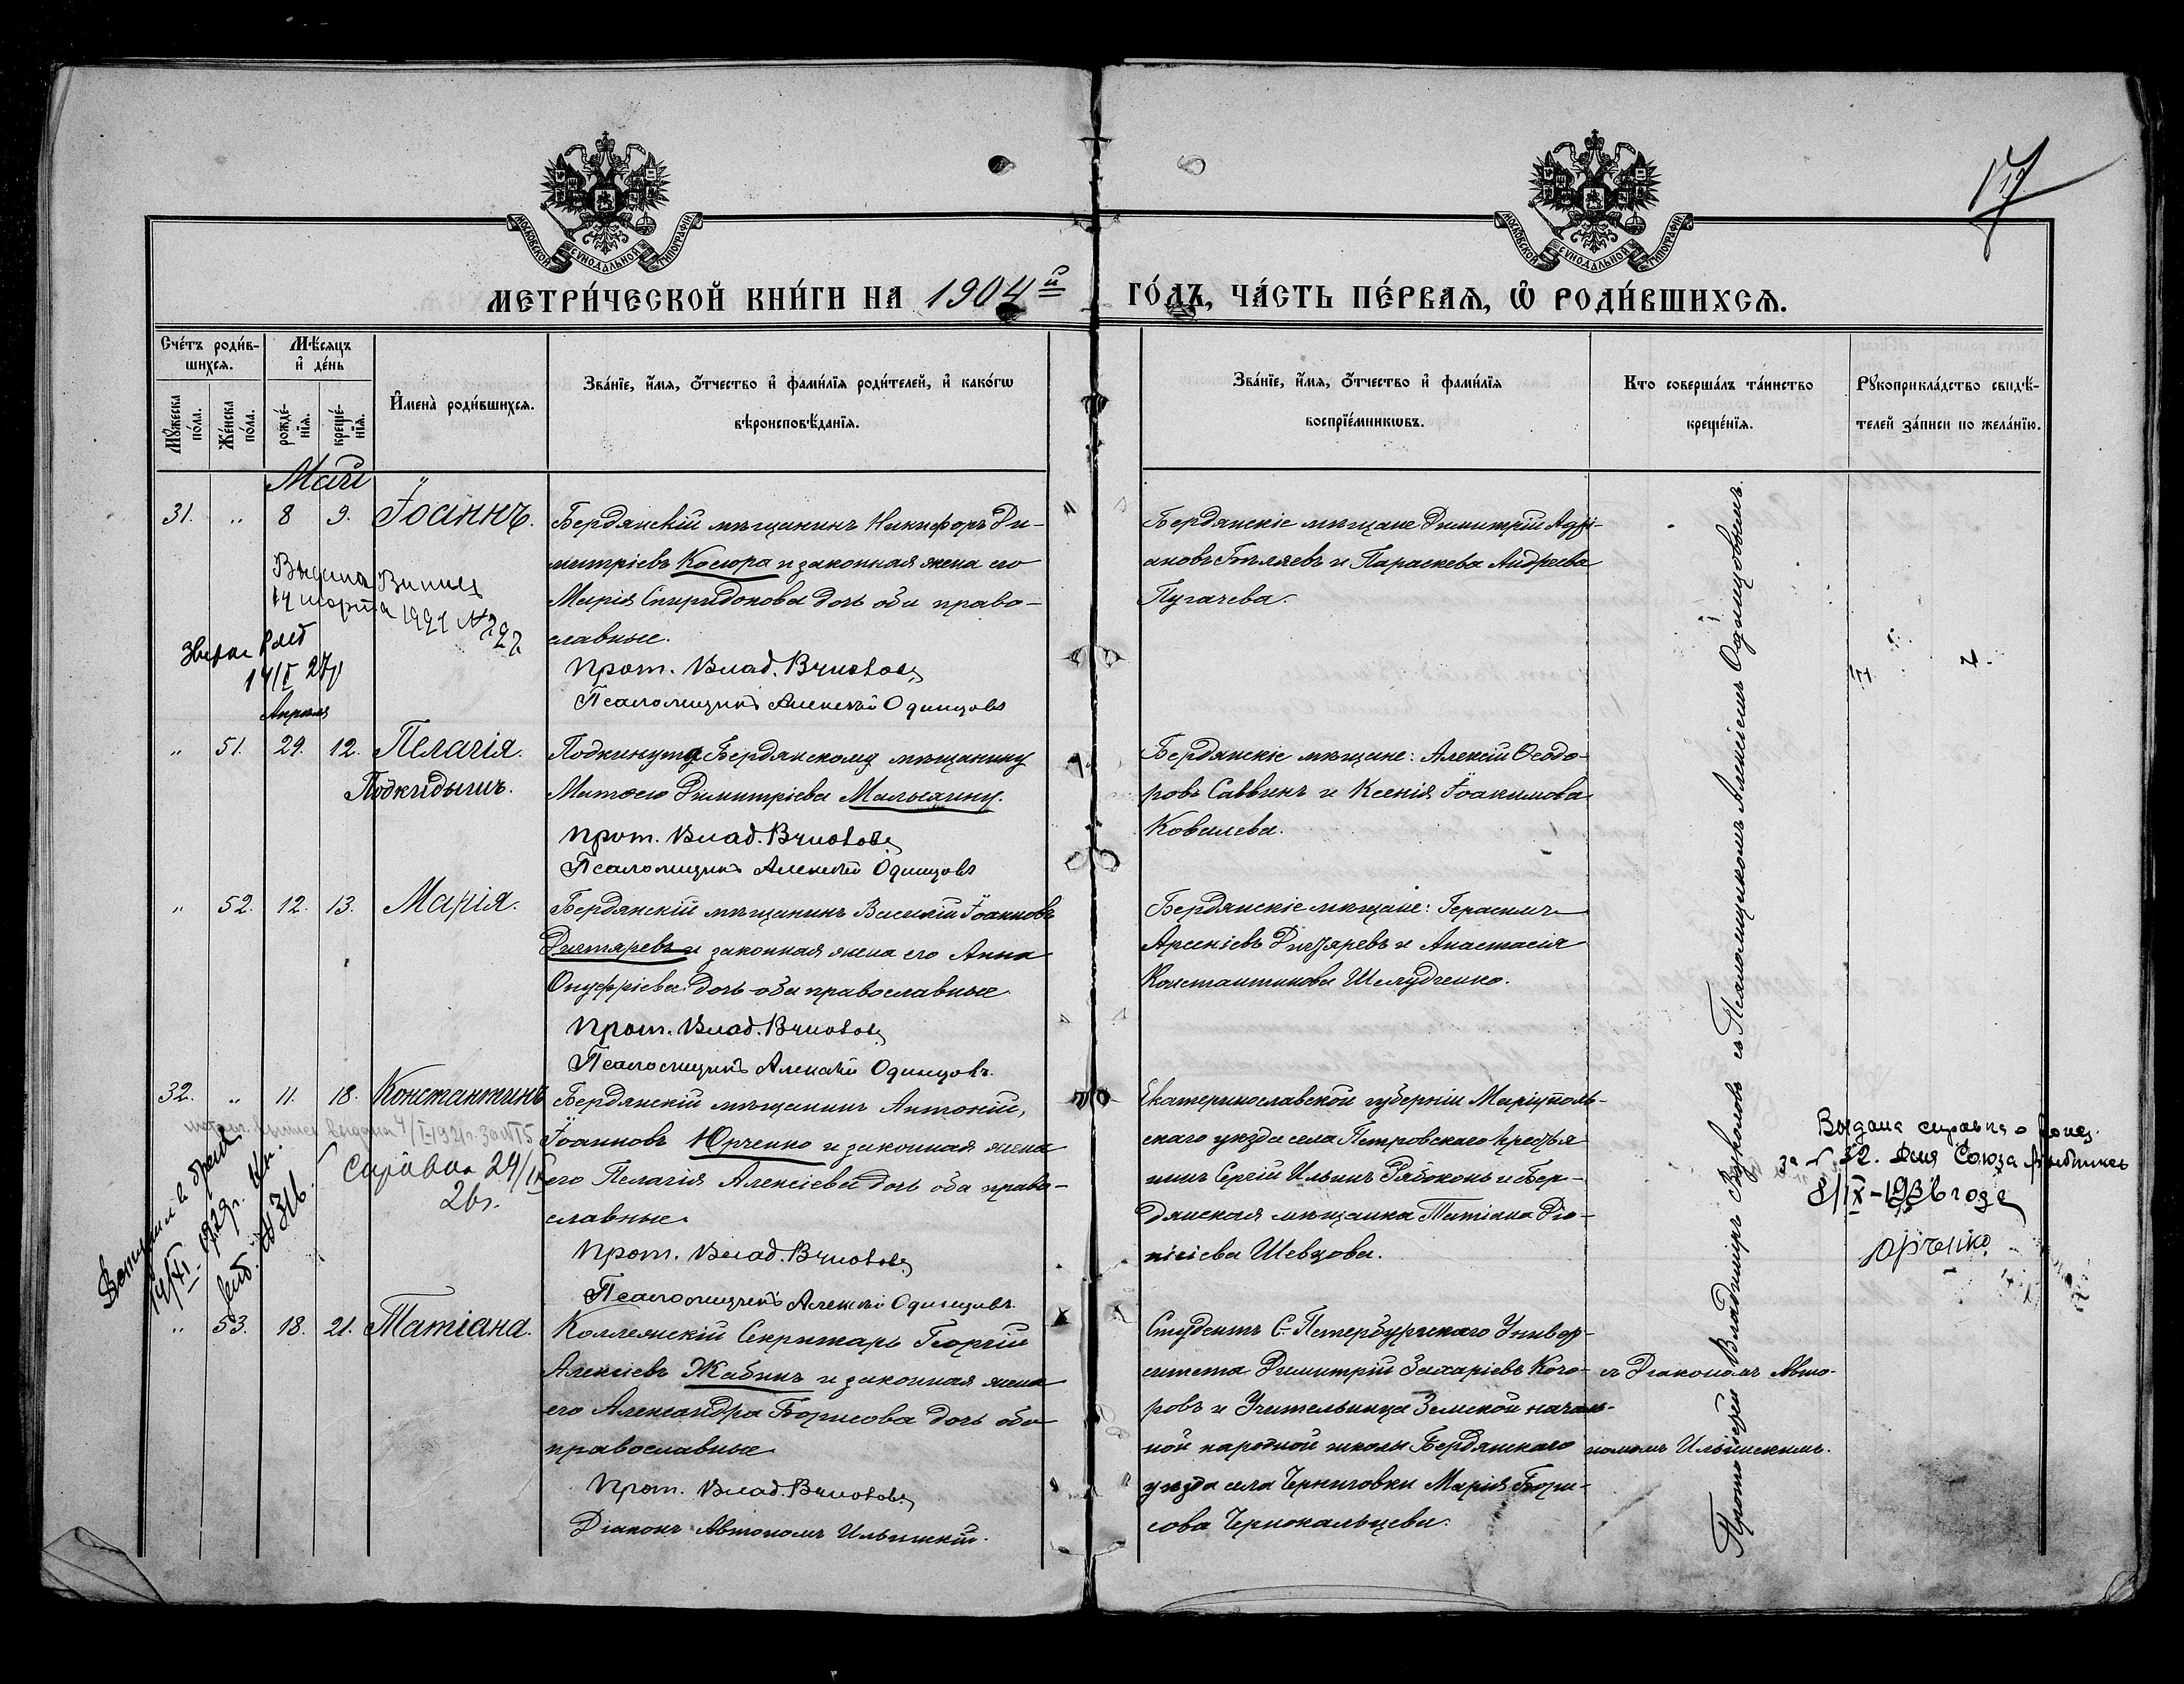 17
МОСКОВСКОЙ СѴНОДАЛЬНОЙ ТИПОГРАФІИ
МОСКОВСКОЙ СѴНОДАЛЬНОЙ ТИПОГРАФІИ
МЕТРИ́ЧЕСКОЙ КНИ́ГИ НА 1904й ГО́ДЪ, ЧА́СТЬ ПЕ́РВАѦ, Ѡ҆ РОДИ́ВШИХСѦ.
Сче́тъ роди́в-
шихсѧ.
Мꙋ́жеска по́ла.
Же́нска по́ла.
Мѣ́сѧцъ
и҆ де́нь
рожде́-
нїѧ.
креще́-
нїѧ.
И҆мена̀ роди́вшихсѧ.
Зва́нїе, и҆́мѧ, ѻ҆́тчество и҆ фами́лїѧ роди́телей, и҆ како́гѡ
вѣроисповѣ́данїѧ.
Зва́нїе, и҆́мѧ, ѻ҆́тчество и҆ фами́лїѧ
воспрїе́мникѡвъ.
Кто соверша́лъ та́инство
креще́нїѧ.
Рꙋкоприкла́дство свидѣ́-
телей за́писи по жела́нїю.
Май
31. „ 8 9. Іоаннъ.
Бердянскій мѣщанинъ Никифоръ Ди-
митріевъ Косюра и законная жена его
Марія Спиридонова дочь оба право-
славные.
Прот. Влад.
Псаломщикъ Алексѣй Одинцовъ
Бердянскіе мѣщане Димитрій Адрі-
ановъ Бѣляевъ и Параскева Андреева
Пугачева.
14 марта 1921 №
Апрѣля
„ 51. 29. 12. Пелагія.
Подкидышъ.
Подкинута Бердянскому мѣщанину
Матѳею Димитріеву
Прот. Влад.
Псаломщикъ Алексѣй Одинцовъ
Бердянскіе мѣщане: Алексій Ѳеодо-
ровъ Саввинъ и Ксенія Іоакимова
Ковалева.
„ 52. 12. 13. Марія.
Бердянскій мѣщанинъ Василій Іоанновъ
Дигтяревъ и законная жена его Анна
Онуфріева дочь оба православные
Прот. Влад.
Псаломщикъ Алексѣй Одинцовъ.
Бердянскіе мѣщане: Герасимъ
Арсеніевъ Дигтяревъ и Анастасія
Константинова Шелудченко.
32. „ 11. 18. Константинъ
Бердянскій мѣщанинъ Антоній,
Іоанновъ Юрченко и законная жена
его Пелагія Алексіева дочь оба право-
славные.
Прот. Влад.
Псаломщикъ Алексѣй Одинцовъ.
Екатеринославской губерніи Маріуполь-
скаго уѣзда села Петровскаго крестья-
нинъ Сергій Ильинъ Рябоконь и Бер-
дянская мѣщанка Татіана Діо-
нисіева Шевцова.
Справка 24/
26 г.
№ 316.
Выдана справка о рожд.
за № 32. Для Союза
8/IX-1936 года
Юрченко
„ 53. 18. 21. Татіана.
Коллежскій Секретарь Георгій
Алексіевъ Жабинъ и законная жена
его Александра Борисова дочь оба
православные
Прот. Влад.
Діаконъ Автономъ Ильинскій.
Студентъ С.-Петербургскаго Универ-
ситета Димитрій Захаріевъ
и Учительница Земской началь-
ной народной школы Бердянскаго
уѣзда села Черниговки Марія Бори-
сова
съ Діакономъ Авто-
номомъ Ильинскимъ.
Протоіерей Владимиръ съ Псаломщикомъ Алексіемъ Одинцовымъ.